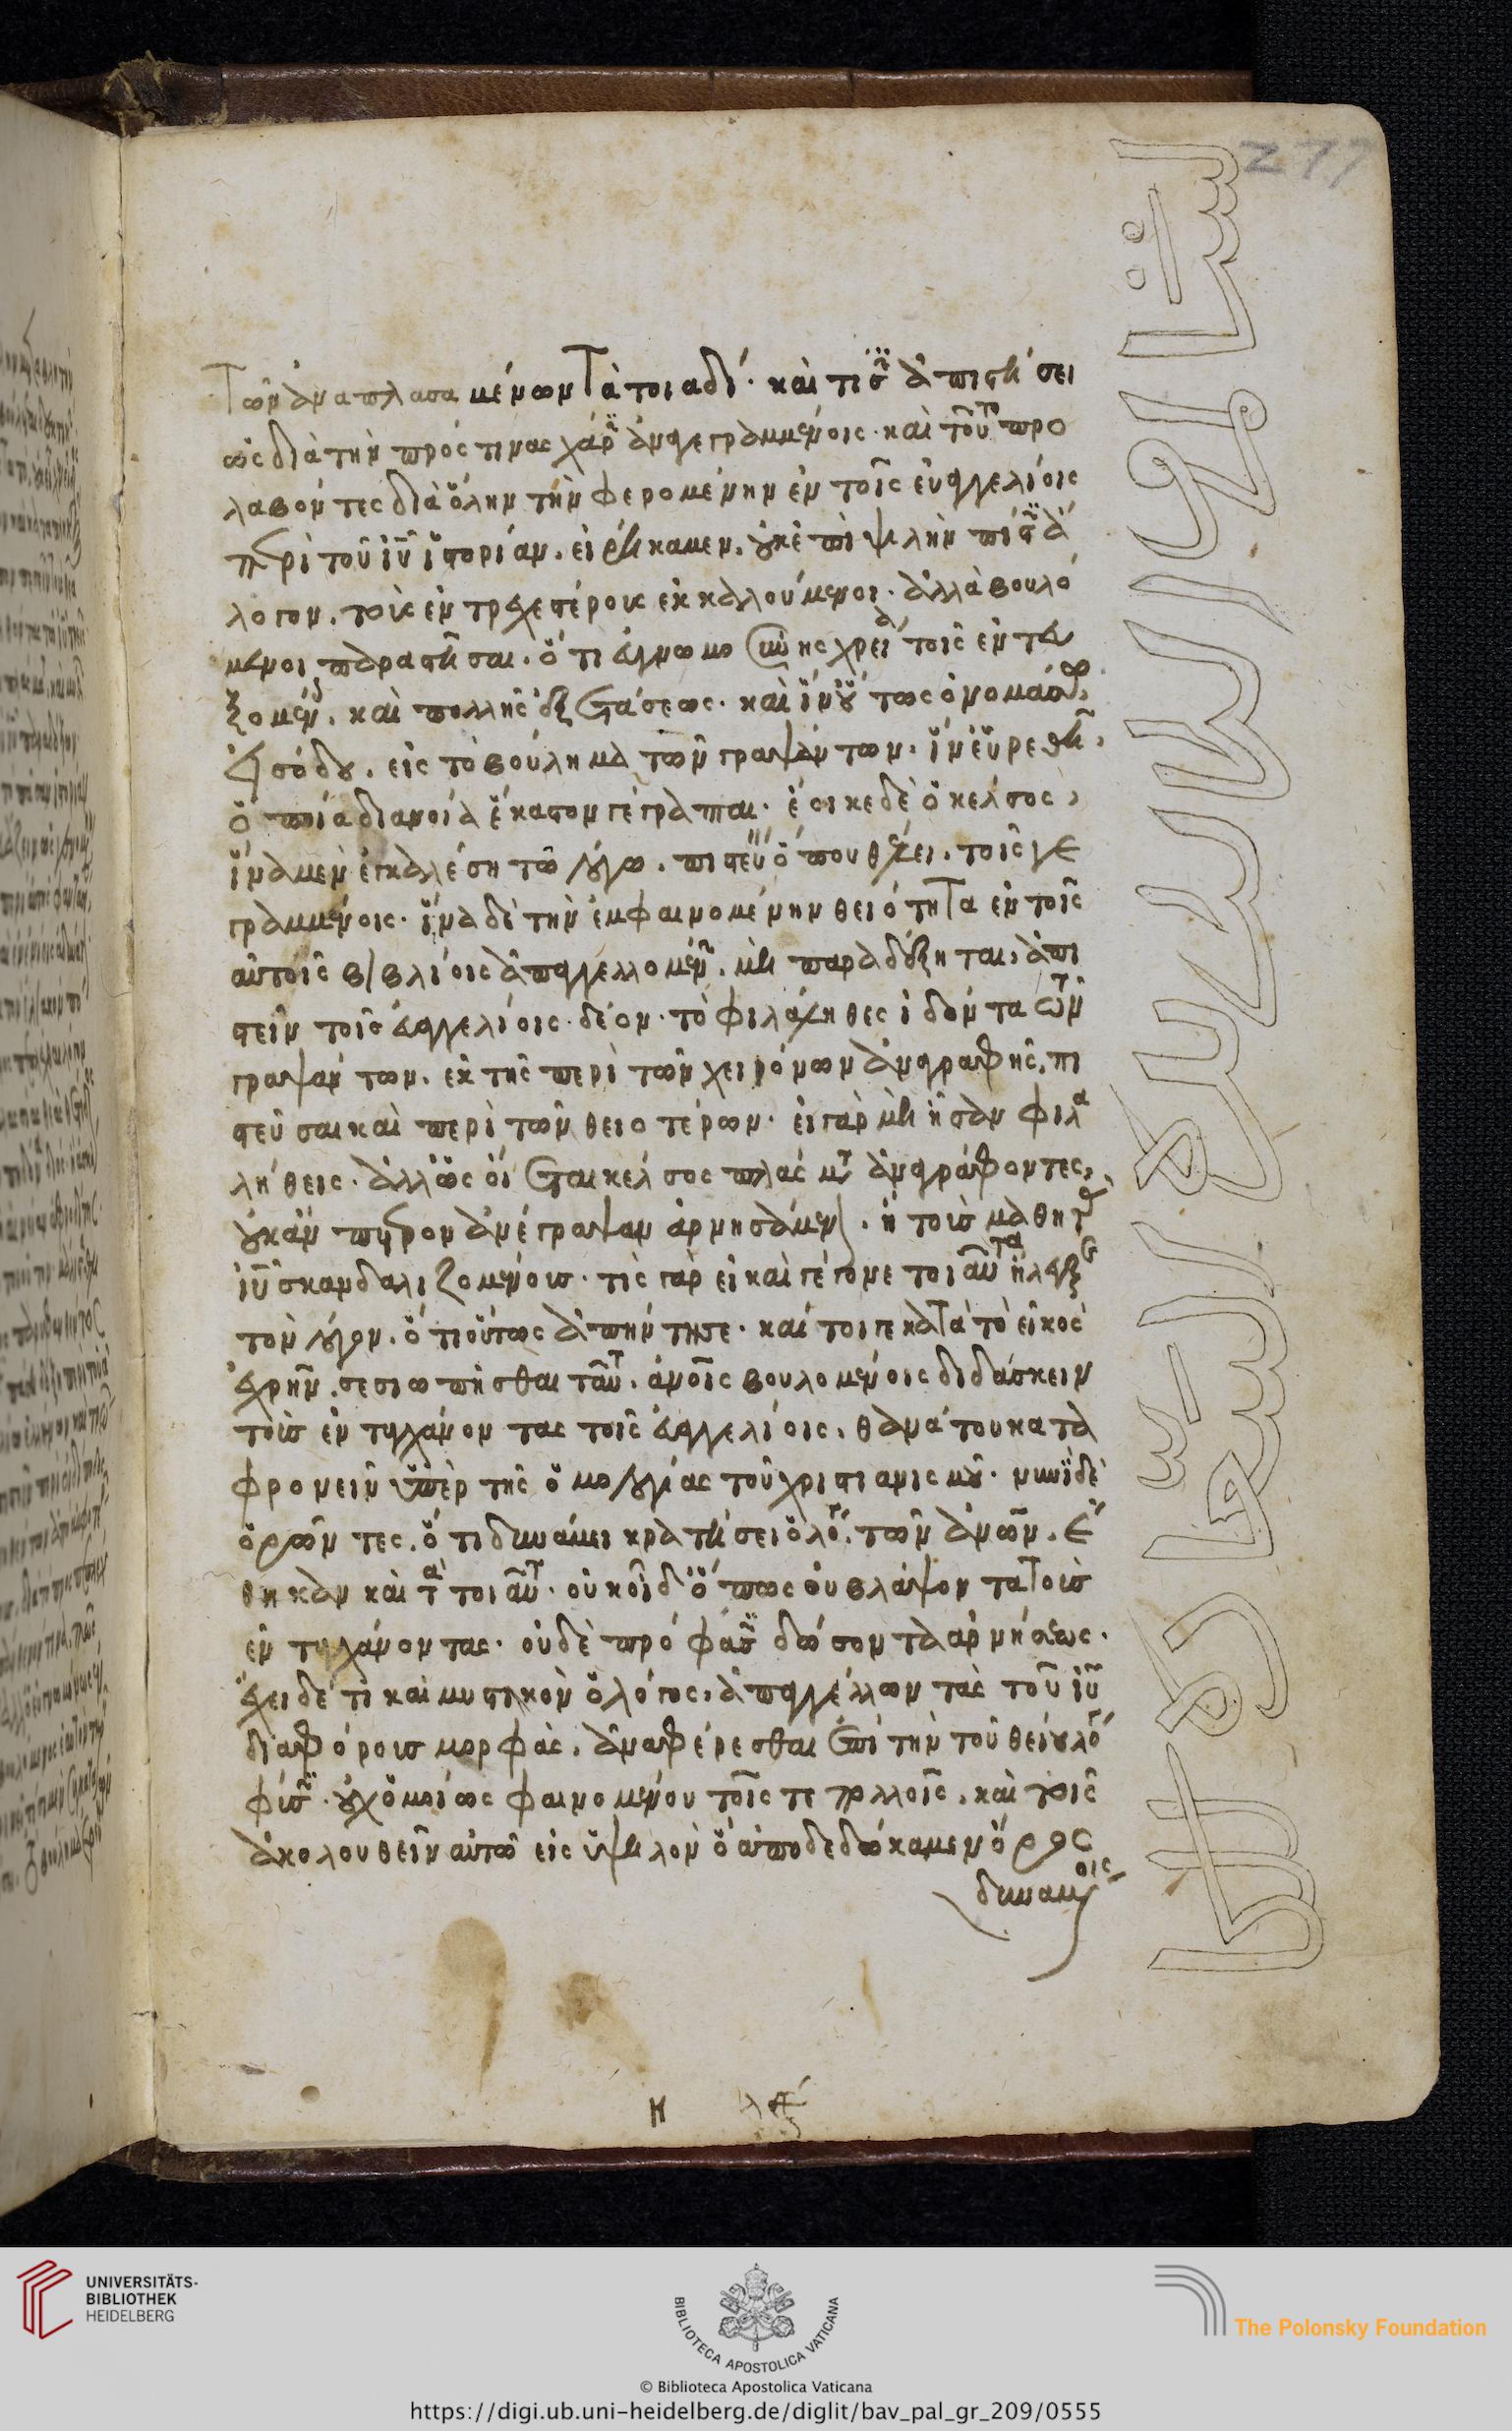 Τῶν ἀναπλασαμένων τὰ τοιαδί· καὶ τίσιν ἀπιστήσει
ὡς διὰ τὴν πρός τινας χάριν ἀναγεγραμμένοις· καὶ τοῦτο προ
λαβόντες διὰ ὅλην τὴν φερομένην ἐν τοῖς εὐαγγελίοις
περὶ τοῦ ἰῦ ἱστορίαν, εἰρήκαμεν, οὐκ ἐπὶ ψιλὴν πίστιν ἄ
λογον, τοὺς ἐντρεχεστέρους ἐκκαλούμενοι· ἀλλὰ βουλό
μενοι παραστῆσαι, ὅτι εὐγνωμοσύνης χρεία τοῖς ἐντευ
ξομένοις, καὶ πολλῆς ἐξετάσεως· καὶ ἵν' οὕτως ὀνομάσω,
εἰσόδου, εἰς τὸ βούλημα τῶν γραψάντων, ἵν' εὑρεθῆ,
ὁποία διανοία ἕκαστον γέγραπται· ἔοικε δὲ ὁ κέλσος,
ἵνα μὲν ἐγκαλέση τῶ λόγω, πιστεύειν ὅπου θέλει, τοῖς γε
γραμμένοις· ἵνα δὲ τὴν ἐμφαινομένην θειότητα ἐν τοῖς
αὐτοῖς βιβλίοις ἀπαγγελλομένην, μὴ παραδέξηται, ἀπι
στεῖν τοῖς εὐαγγελίοις· δέον· τὸ φιλάληθες ἰδόντα τῶν
γραψάντων, ἐκ τῆς περὶ τῶν χειρόνων ἀναγραφῆς, πι
στεῦσαι καὶ περὶ τῶν θειοτέρων· εἰ γὰρ μὴ ἦσαν φιλα
λήθεις· ἀλλ' ὡς οἴεται κέλσος πλάσματα ἀναγράφοντες,
οὐκ ἂν πέτρον ἀνέγραψαν ἀρνησάμενον, ἢ τοὺς μαθητὰς
ἰῦ σκανδαλιζομένους· τίς γὰρ εἰ καὶ γέγονε τοιαῦτα ἤλεγξε
τὸν λόγον, ὅτι οὕτως ἀπήντησε· καί τοι γε κατὰ τὸ εἰκὸς
ἐχρῆν σεσιωπῆσθαι ταῦτα, ἀνοῖς βουλομένοις διδάσκειν
τοὺς ἐντυγχάνοντας τοῖς εὐαγγελίοις, θανάτου κατα
φρονεῖν ὑπὲρ τῆς ὁμολογίας τοῦ χριστιανισμοῦ· νυνὶ δὲ
ὁρῶντες, ὅτι δυνάμει κρατήσει ὁ λόγος, τῶν ἀνῶν, ἔ
θηκαν καὶ τὰ τοιαῦτα· οὐκ οἶδ' ὅπως οὐ βλάψοντα τοὺς
ἐντυγχάνοντας· οὐδὲ πρόφασιν δώσοντα ἀρνήσεως·
ἔχει δέ τι καὶ μυστικὸν ὁ λόγος, ἀπαγγέλλων τὰς τοῦ ἰῦ
διαφόρους μορφάς, ἀναφέρεσθαι ἐπὶ τὴν τοῦ θείου λόγου
φύσιν· οὐχ ὁμοίως φαινομένου τοῖς τε πολλοῖς, καὶ τοῖς
ἀκολουθεῖν αὐτῶ εἰς ὑψηλὸν ὃ ἀποδεδώκαμεν ὄρος
δυναμένοις
277
UNIVERSITÄTS-
BIBLIOTHEK
HEIDELBERG
BIBLIOTECA APOSTOLICA VATICANA
© Biblioteca Apostolica Vaticana
The Polonsky Foundation
https://digi.ub.uni-heidelberg.de/diglit/bav_pal_gr_209/0555